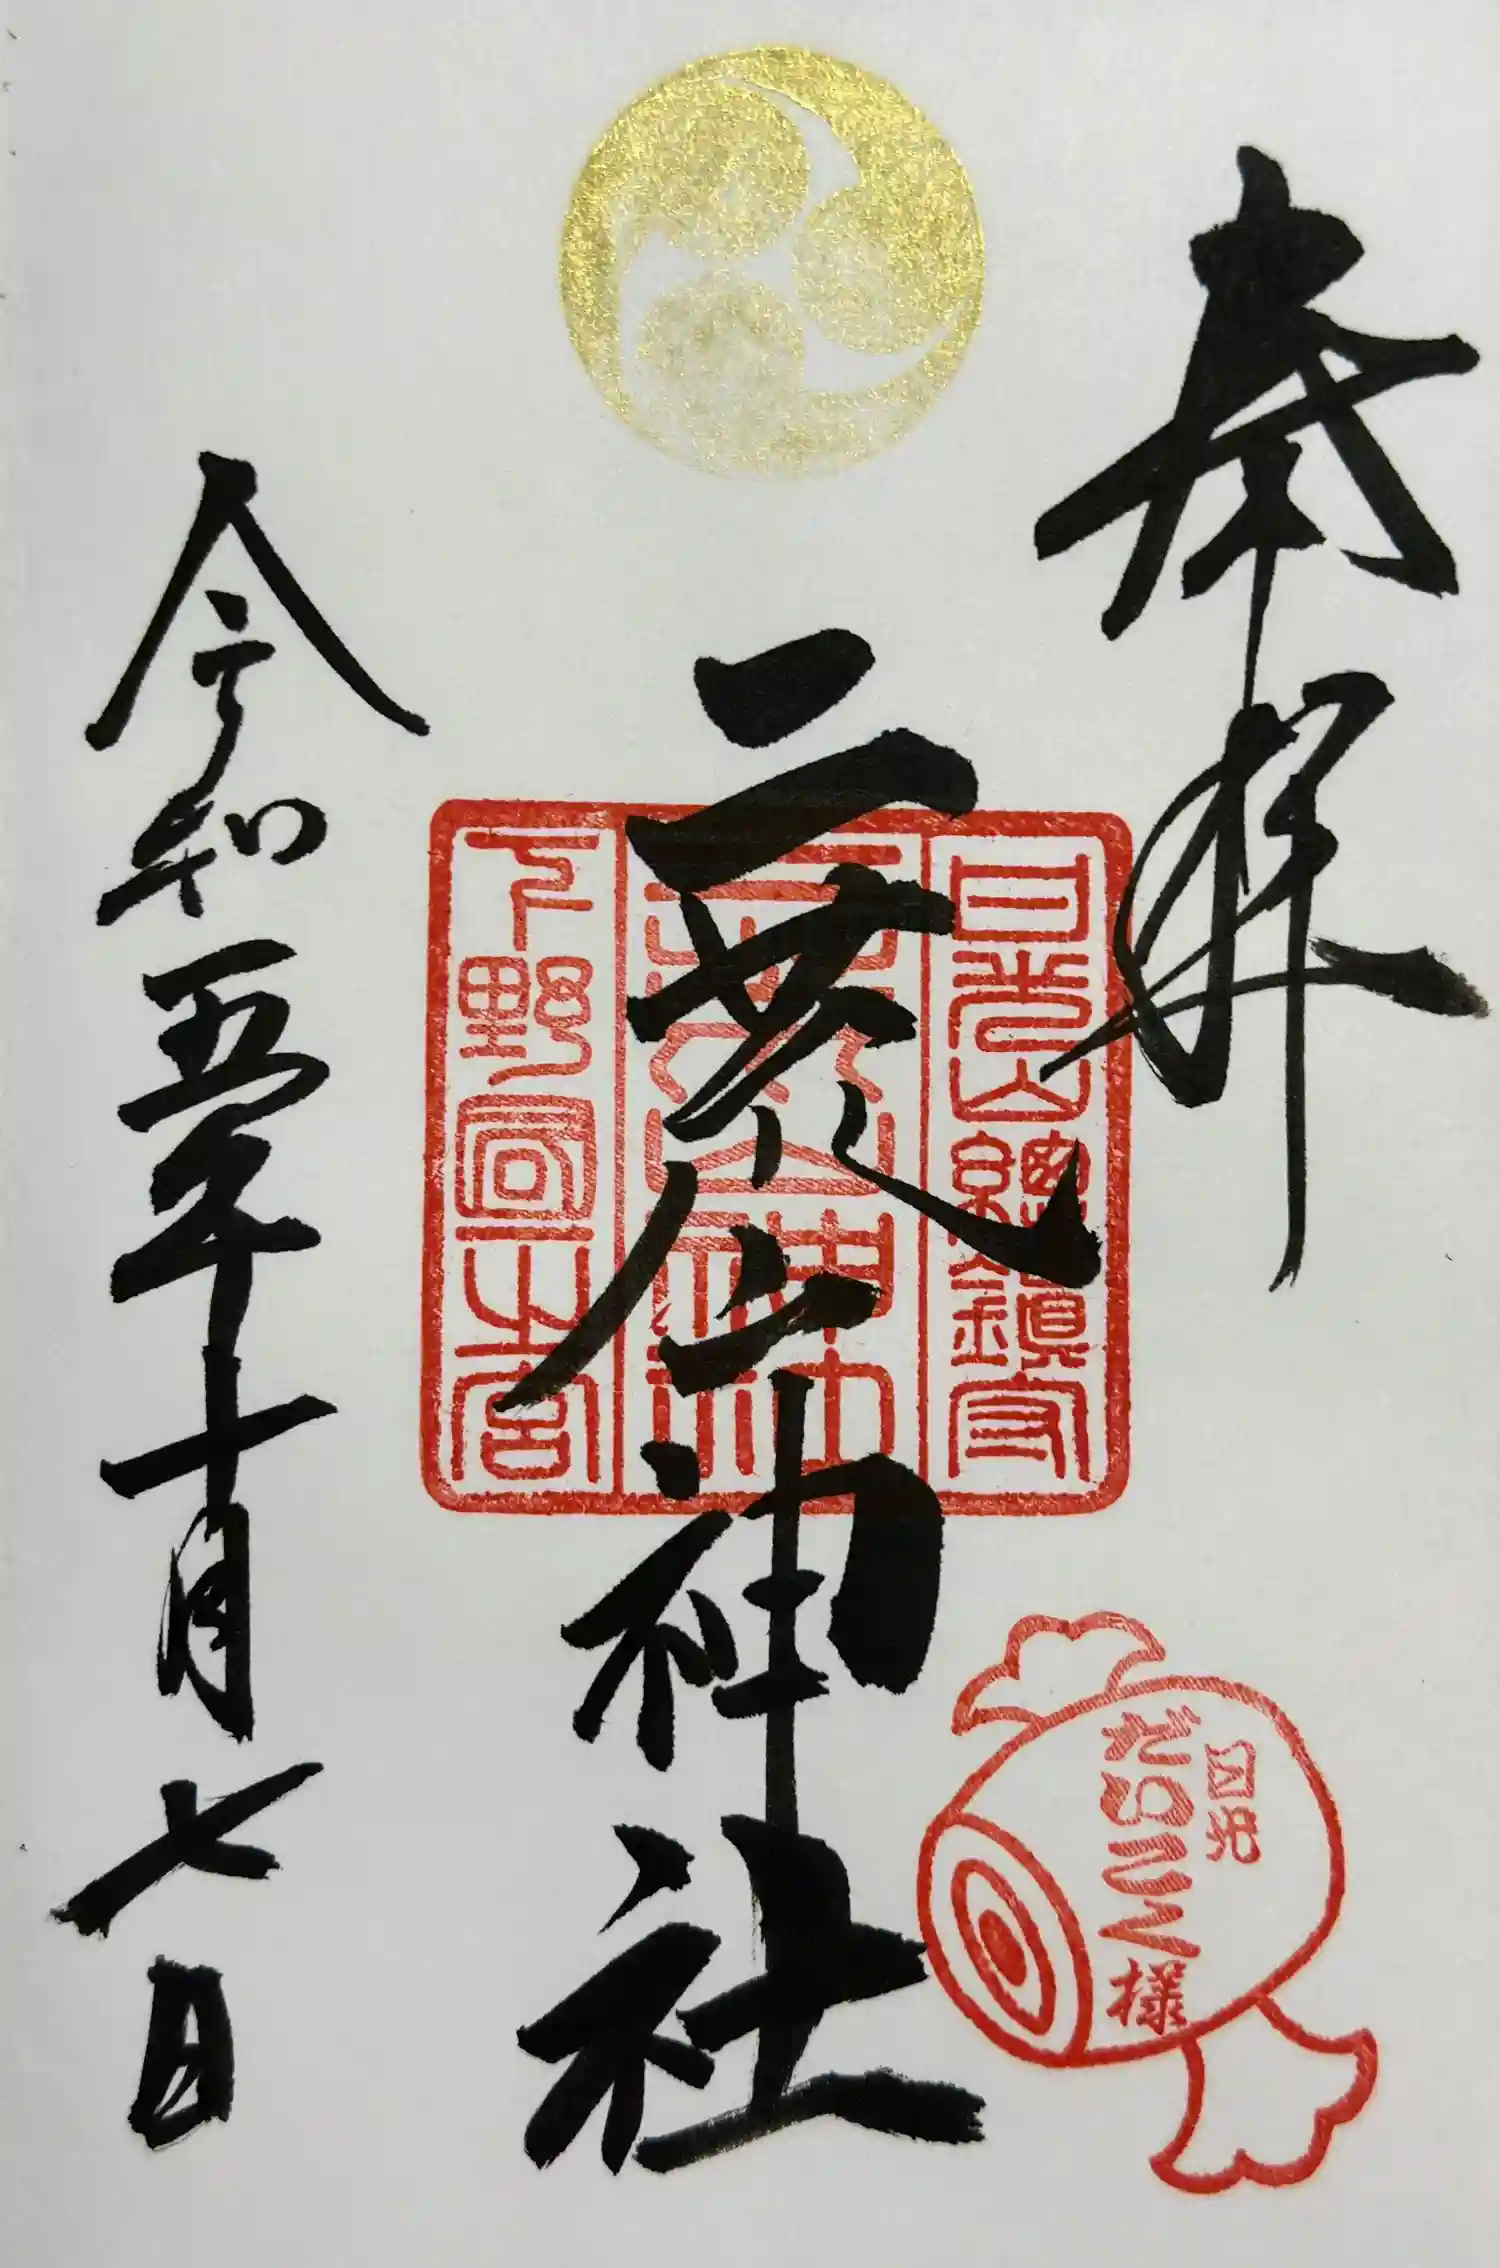 奉拝
日光山總鎮守
二荒山神社
二荒山神社
下野國一之宮
令和五年十月七日
日光
だいこく様